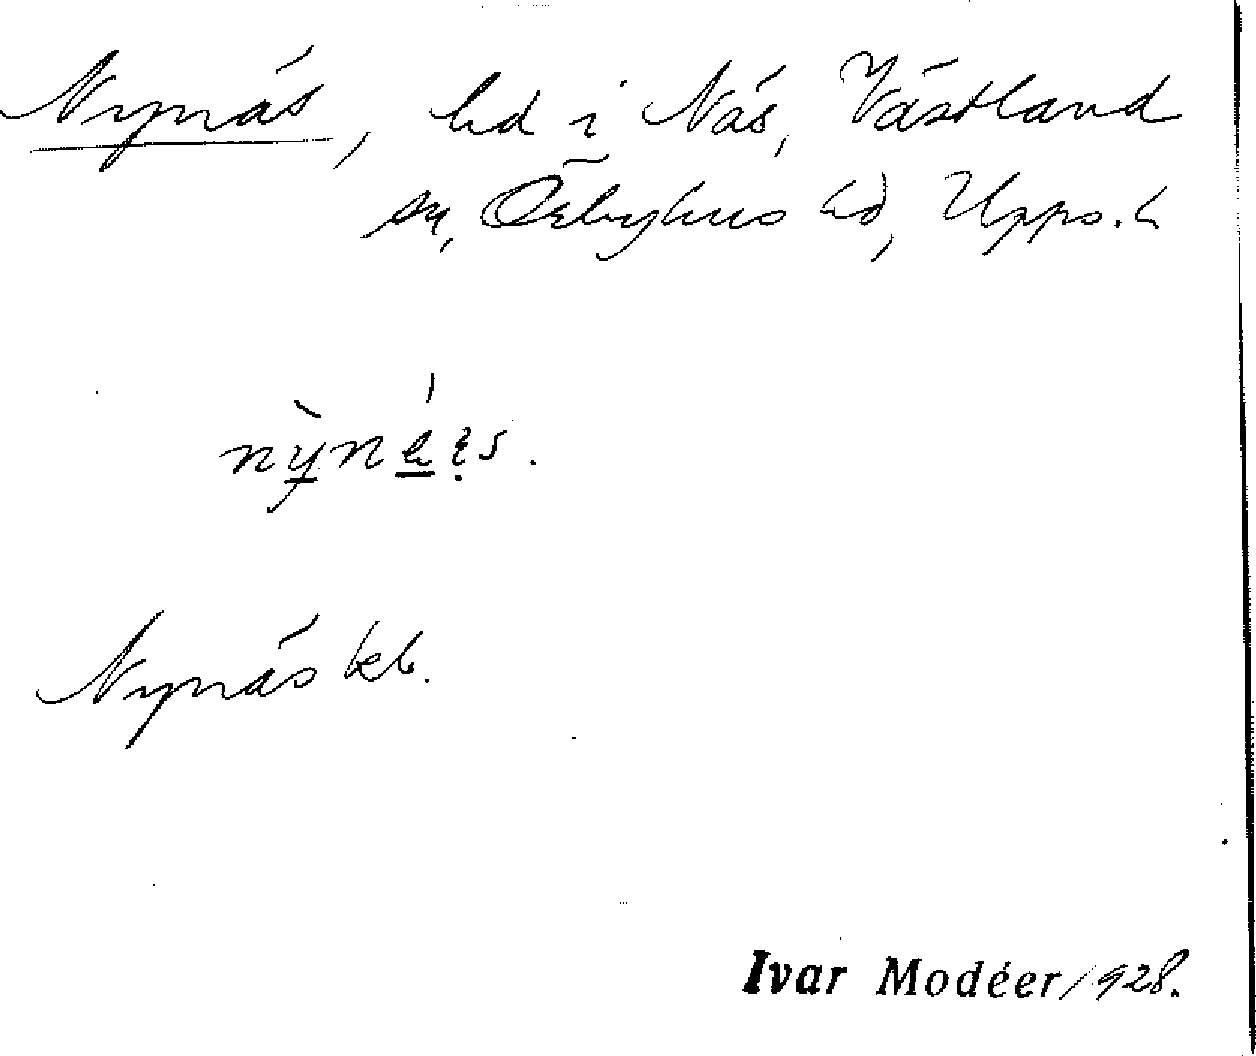 Nynäs, hd i Näs, Västland
sn, Örbyhus hd, Upps. l
Nynäs kb.
Ivar Modéer 1928.